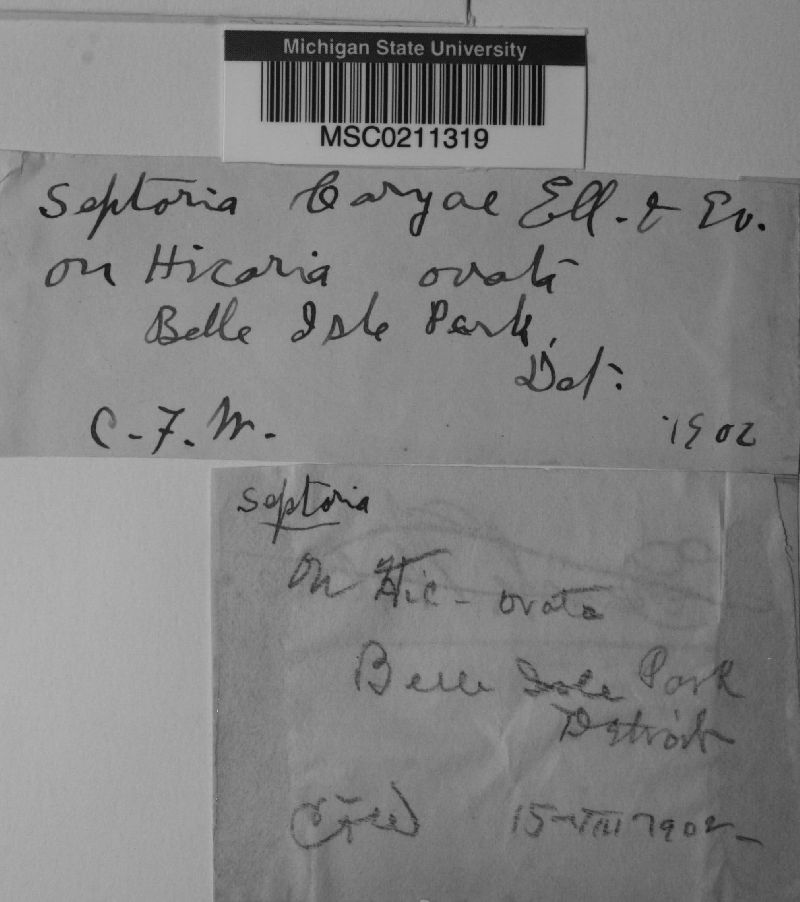 Michigan State University
MSC0211319
Septoria Caryae Ell. & Ev.
on Hicoria ovata
Belle Isle Park,
Det.
C. F. W. 1902
Septoria
On Hic - ovata
Belle Isle Park
Detroit
CFW 15-VIII 1902-